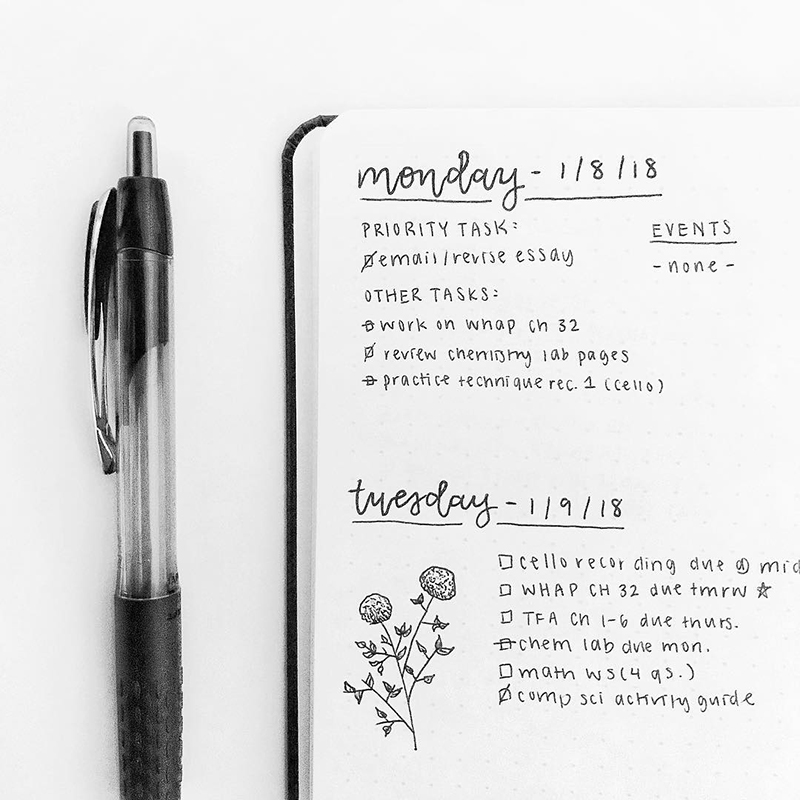 monday - 1/8/18
PRIORITY TASK:
email/revise essay
OTHER TASKS:
work on whap ch 32
review chemistry lab pages
practice technique rec. 1 (cello)
EVENTS
- none -
tuesday - 1/9/18
cello recording due @
WHAP CH 32 due tmrw
TFA Ch 1-6 due thurs.
chem lab due mon.
math ws (4 qs.)
comp sci activity guide